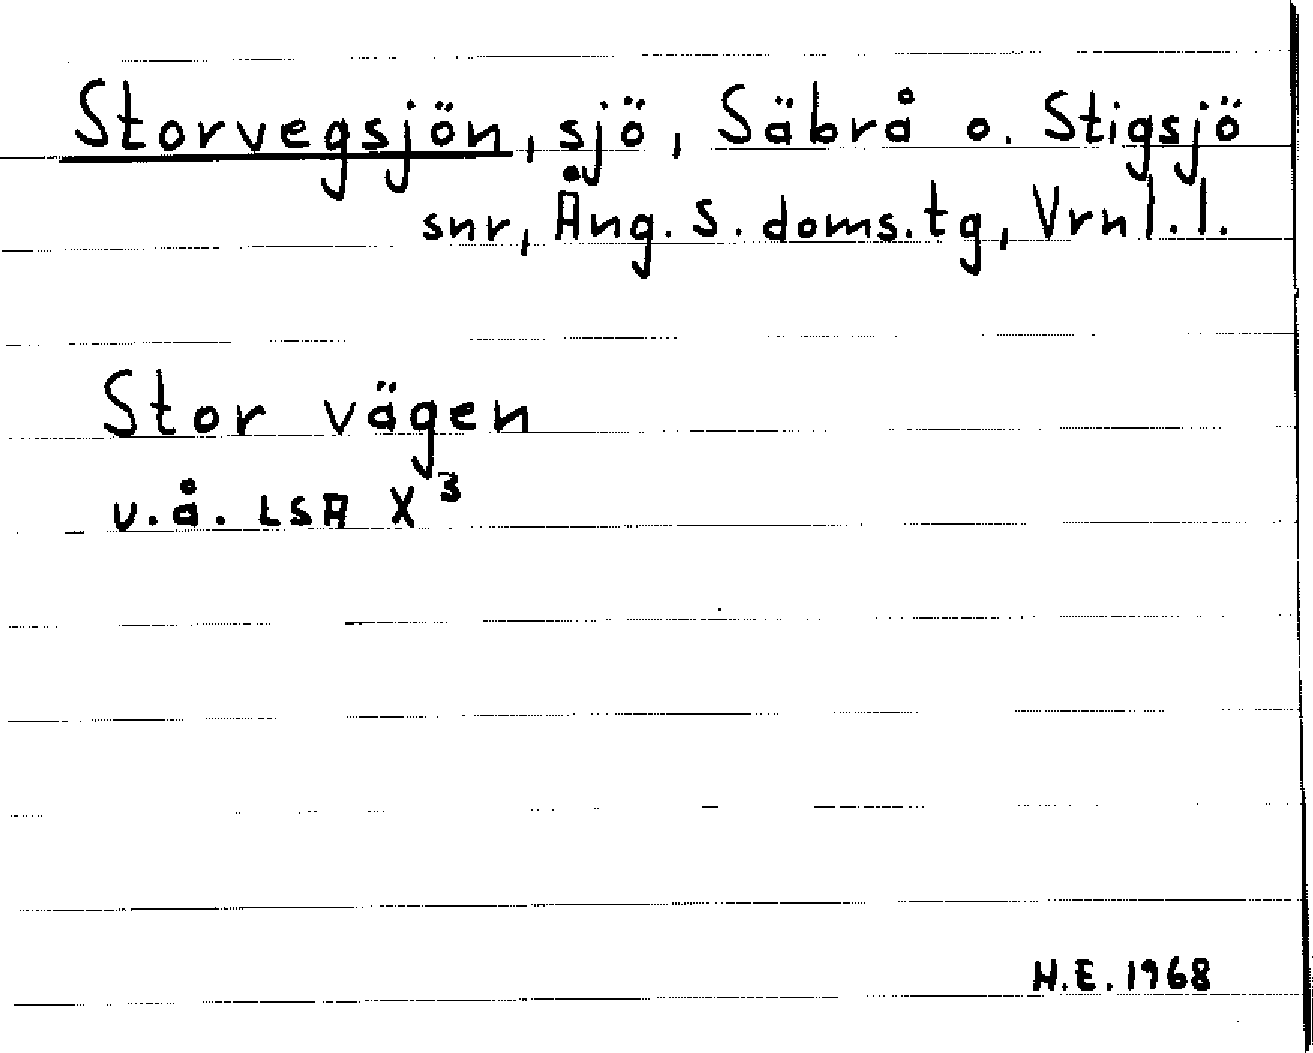 Storvegsjön, sjö, Säbrå o. Stigsjö
snr, Ång. S. doms.tg, Vrnl.l.
Stor vägen
u.å. LSA X3
H.E. 1968